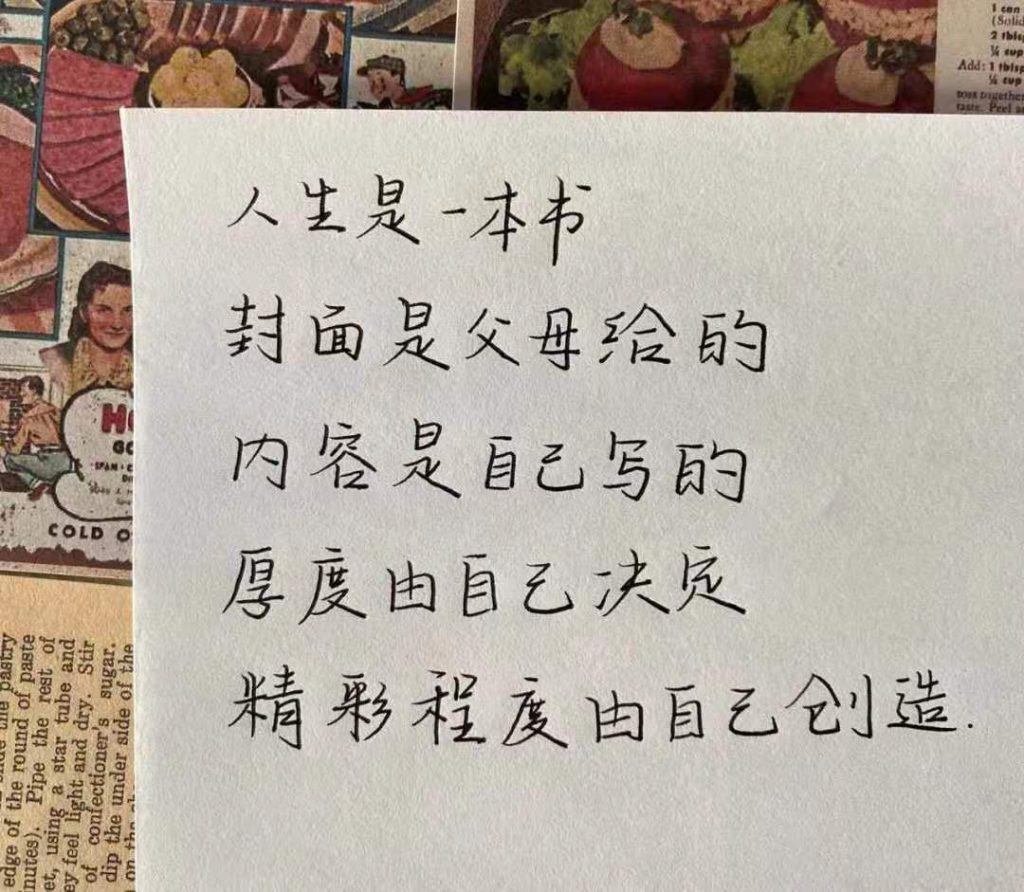 人生是一本书
封面是父母给的
内容是自己写的
厚度由自己决定
精彩程度由自己创造.
1 can
(Solid
2 tblsp
¼ cup
Add: 1 tblsp
¼ cup
toss together
taste. Peel
COLD
pastry
edge of the round of paste
nutes). Pipe the rest of
et, using a star tube and
ey feel light and dry. Stir
of confectioner's sugar.
dip the under side of the